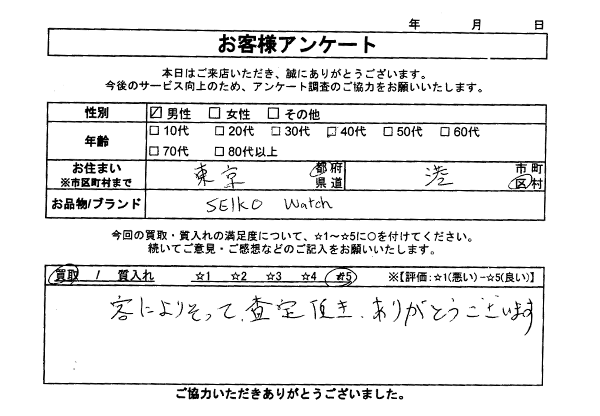 年 月 日
お客様アンケート
本日はご来店いただき、誠にありがとうございます。
今後のサービス向上のため、アンケート調査のご協力をお願いいたします。
性別 ☑ 男性 □ 女性 □ その他
年齢 □ 10代 □ 20代 □ 30代 □ 40代 □ 50代 □ 60代
□ 70代 □ 80代以上
お住まい 東京 都府 港 市町
※市区町村まで 県道 区村
お品物/ブランド SEIKO Watch
今回の買取・質入れの満足度について、☆1〜☆5に○を付けてください。
続いてご意見・ご感想などのご記入をお願いいたします。
買取 / 質入れ ☆1 ☆2 ☆3 ☆4 ☆5 ※【評価:☆1(悪い)−☆5(良い)】
客によりそって、査定頂き、ありがとうございます
ご協力いただきありがとうございました。